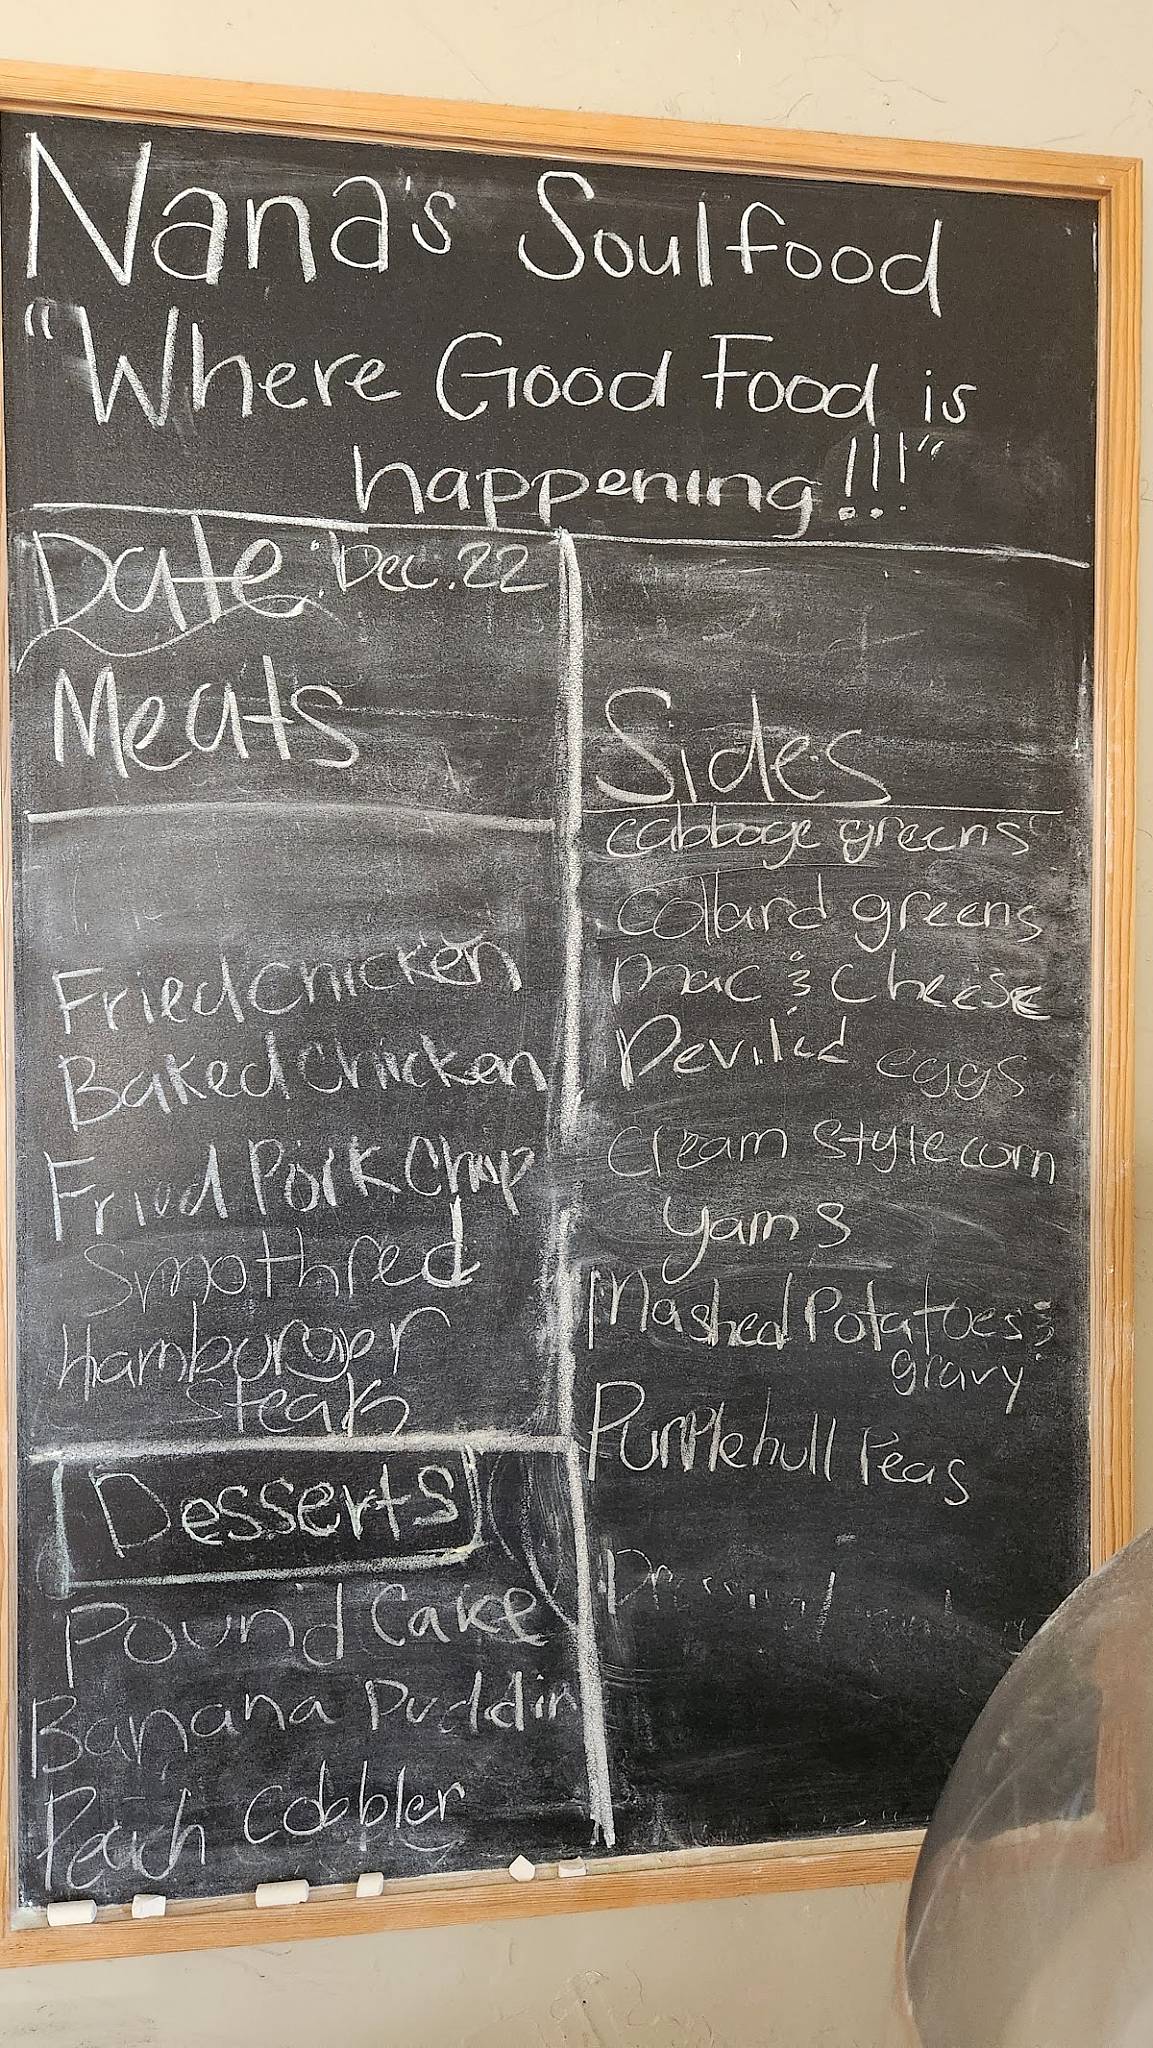 Nana's Soulfood
"Where Good Food is
happening!!!"
Date: Dec. 22
Meats
Fried Chicken
Baked Chicken
Fried Pork Chop
Smothred
Hamburger
Steak
Desserts
Pound Cake
Banana Puddin
Peach Cobbler
Sides
Cabbage greens
Collard greens
Mac & Cheese
Deviled eggs
Cream style corn
Yams
Mashed Potatoes &
gravy
Purplehull Peas